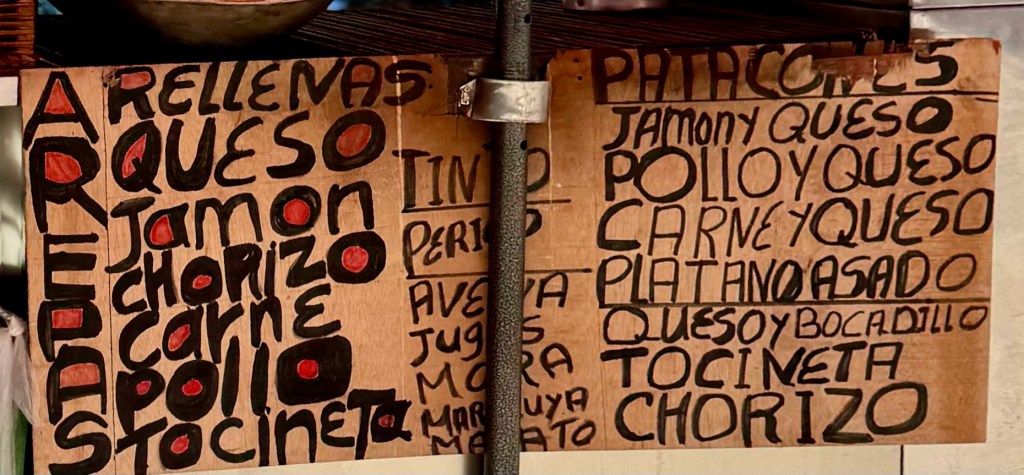 AREPAS
RELLENAS
QUESO
Jamon
CHORIZO
Carne
Pollo
TocineTa
TINTO
PERICO
AVENA
JugOS
MORA
MARACUYA
PATACONES
JAMON Y QUESO
POLLO Y QUESO
CARNE Y QUESO
PLATANO ASADO
QUESO Y BOCADILLO
TOCINETA
CHORIZO